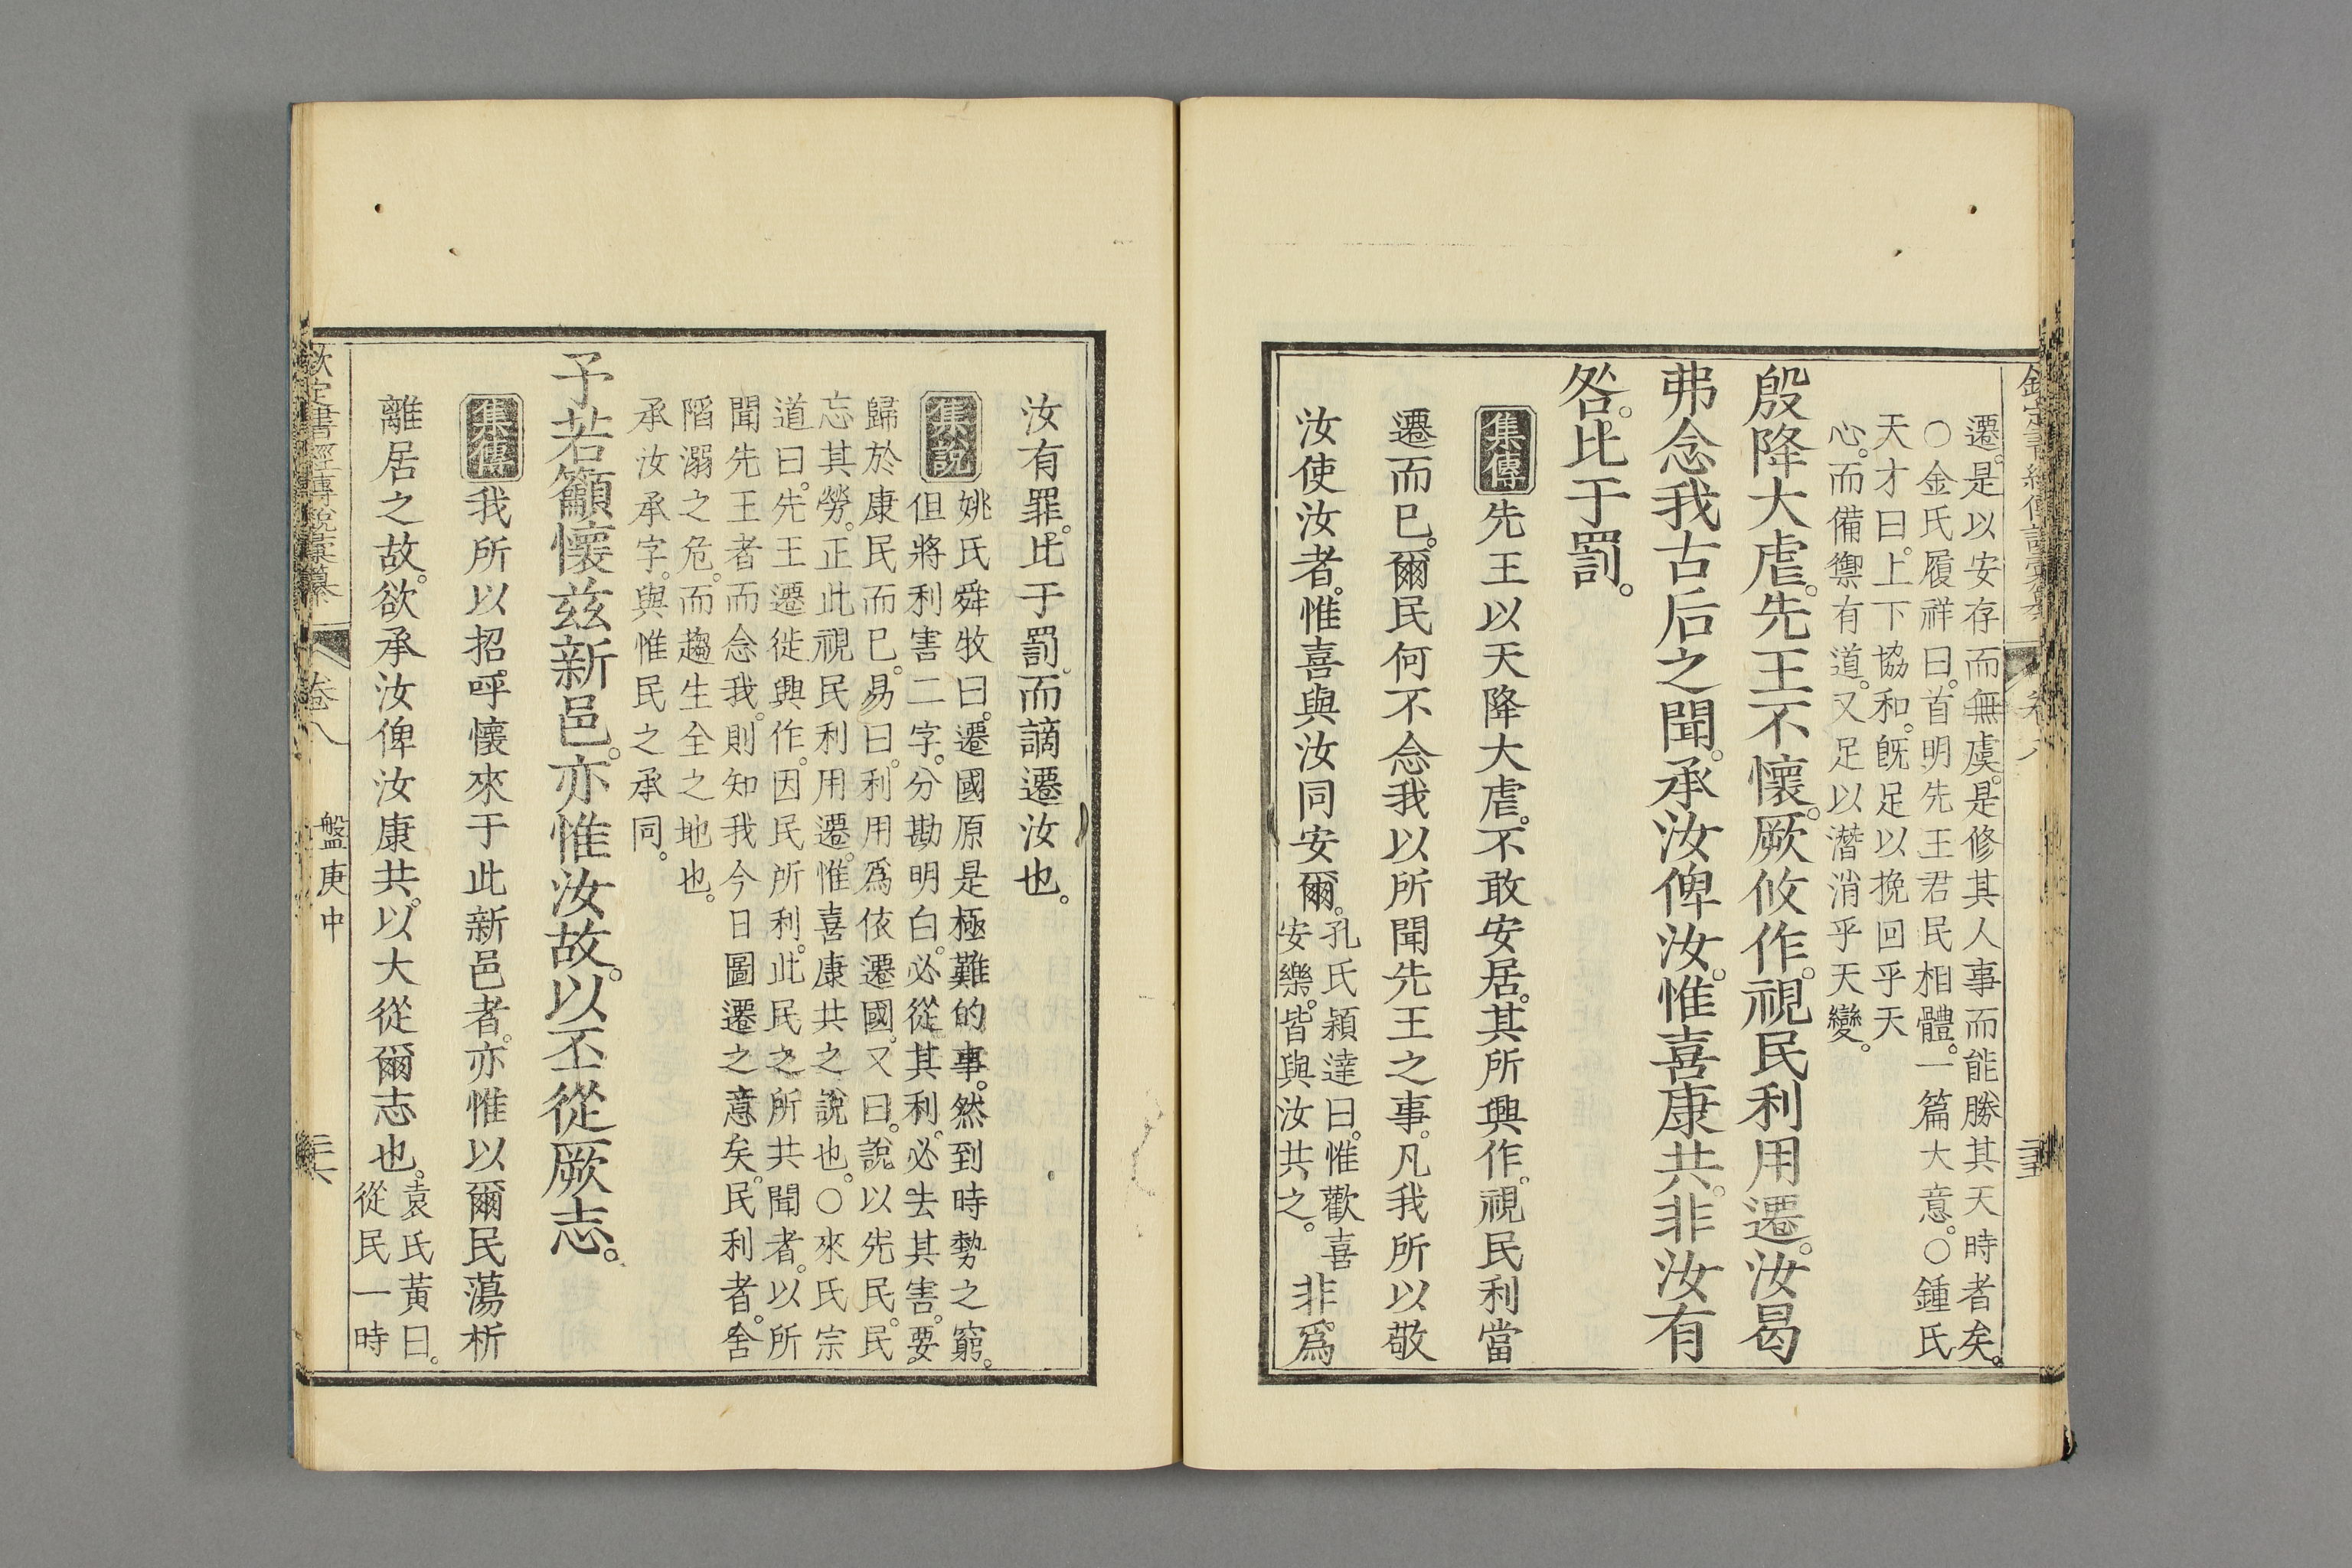 遷。是以安存而無虞。是修其人事而能勝其天時者矣。
○金氏履祥曰。首明先王君民相體。一篇大意。○鍾氏
天才曰。上下協和。旣足以挽回乎天
心。而備禦有道。又足以潛消乎天變。
殷降大虐。先王不懷。厥攸作。視民利用遷。汝曷
弗念我古后之聞。承汝俾汝。惟喜康共。非汝有
咎。比于罰。
集傳
先王以天降大虐。不敢安居。其所興作。視民利當
遷而已。爾民何不念我以所聞先王之事。凡我所以敬
汝使汝者。惟喜與汝同安爾。
孔氏穎達曰。惟歡喜
安樂。皆與汝共之。
非爲
汝有罪。比于罰。而謫遷汝也。
集說
姚氏舜牧曰。遷國原是極難的事。然到時勢之窮。
但將利害二字。分勘明白。必從其利。必去其害。要
歸於康民而已。易曰。利用爲依遷國。又曰。說以先民。民
忘其勞。正此視民利用遷。惟喜康共之說也。○來氏宗
道曰。先王遷徙興作。因民所利。此民之所共聞者。以所
聞先王者而念我。則知我今日圖遷之意矣。民利者。舍
陷溺之危。而趨生全之地也。
承汝承字。與惟民之承同。
予若籲懷茲新邑。亦惟汝故。以丕從厥志。
集傳
我所以招呼懷來于此新邑者。亦惟以爾民蕩析
離居之故。欲承汝俾汝康共。以大從爾志也。
袁氏黃曰。
從民一時
欽定書經傳說彙纂
卷八
盤庚中
三六